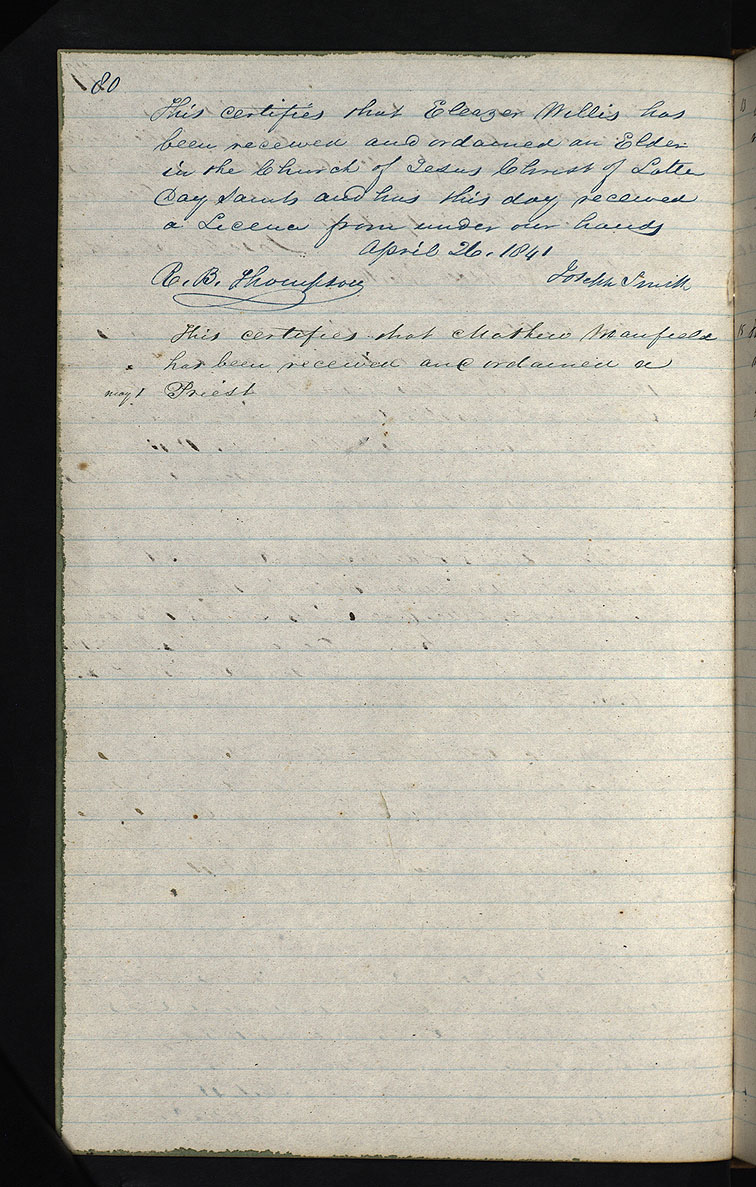 80
This certifies that Eleazer Willis has
been received and ordained an Elder
in the Church of Jesus Christ of Latte
Day Saints and has this day received
a Licence from under our hands
April 26. 1841
R. B. Thompson Joseph Smith
This certifies that Mathew Manfield
has been received and ordained a
may 1 Priest